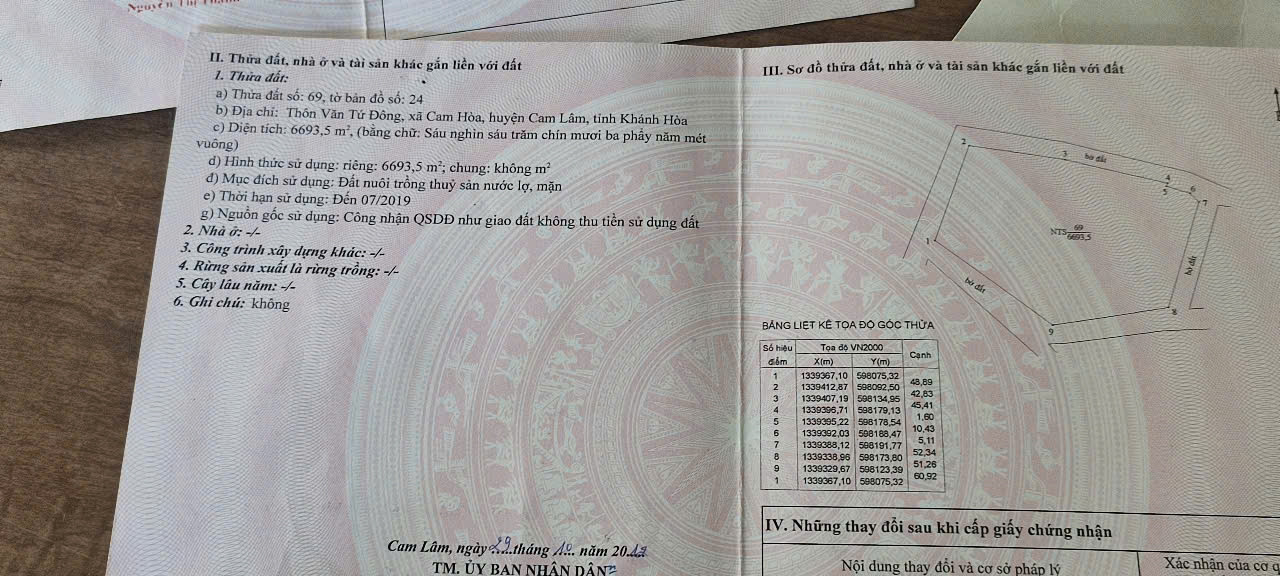 Nguyễn Thị Thanh
II. Thửa đất, nhà ở và tài sản khác gắn liền với đất
1. Thửa đất:
a) Thửa đất số: 69, tờ bản đồ số: 24
b) Địa chỉ: Thôn Văn Tứ Đông, xã Cam Hòa, huyện Cam Lâm, tỉnh Khánh Hòa
c) Diện tích: 6693,5 m², (bằng chữ: Sáu nghìn sáu trăm chín mươi ba phẩy năm mét
vuông)
d) Hình thức sử dụng: riêng: 6693,5 m²; chung: không m²
đ) Mục đích sử dụng: Đất nuôi trồng thuỷ sản nước lợ, mặn
e) Thời hạn sử dụng: Đến 07/2019
g) Nguồn gốc sử dụng: Công nhận QSDĐ như giao đất không thu tiền sử dụng đất
2. Nhà ở: -/-
3. Công trình xây dựng khác: -/-
4. Rừng sản xuất là rừng trồng: -/-
5. Cây lâu năm: -/-
6. Ghi chú: không
Cam Lâm, ngày 29 tháng 10 năm 20
TM. ỦY BAN NHÂN DÂN
III. Sơ đồ thửa đất, nhà ở và tài sản khác gắn liền với đất
2
3
bờ đất
4
5
6
7
NTS 69
6693,5
1
bờ đất
bờ đất
8
9
BẢNG LIỆT KÊ TỌA ĐỘ GÓC THỬA
Số hiệu điểm Tọa độ VN2000 Cạnh
X(m) Y(m)
1 1339367,10 598075,32
48,89
2 1339412,87 598092,50
42,83
3 1339407,19 598134,95
45,41
4 1339396,71 598179,13
1,60
5 1339395,22 598178,54
10,43
6 1339392,03 598188,47
5,11
7 1339388,12 598191,77
52,34
8 1339338,96 598173,80
51,26
9 1339329,67 598123,39
60,92
1 1339367,10 598075,32
IV. Những thay đổi sau khi cấp giấy chứng nhận
Nội dung thay đổi và cơ sở pháp lý
Xác nhận của cơ q